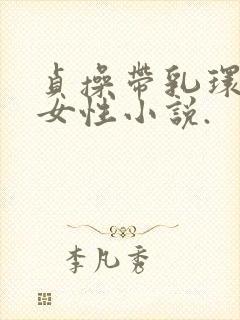 貞操帶乳環
女性小説.
李凡秀